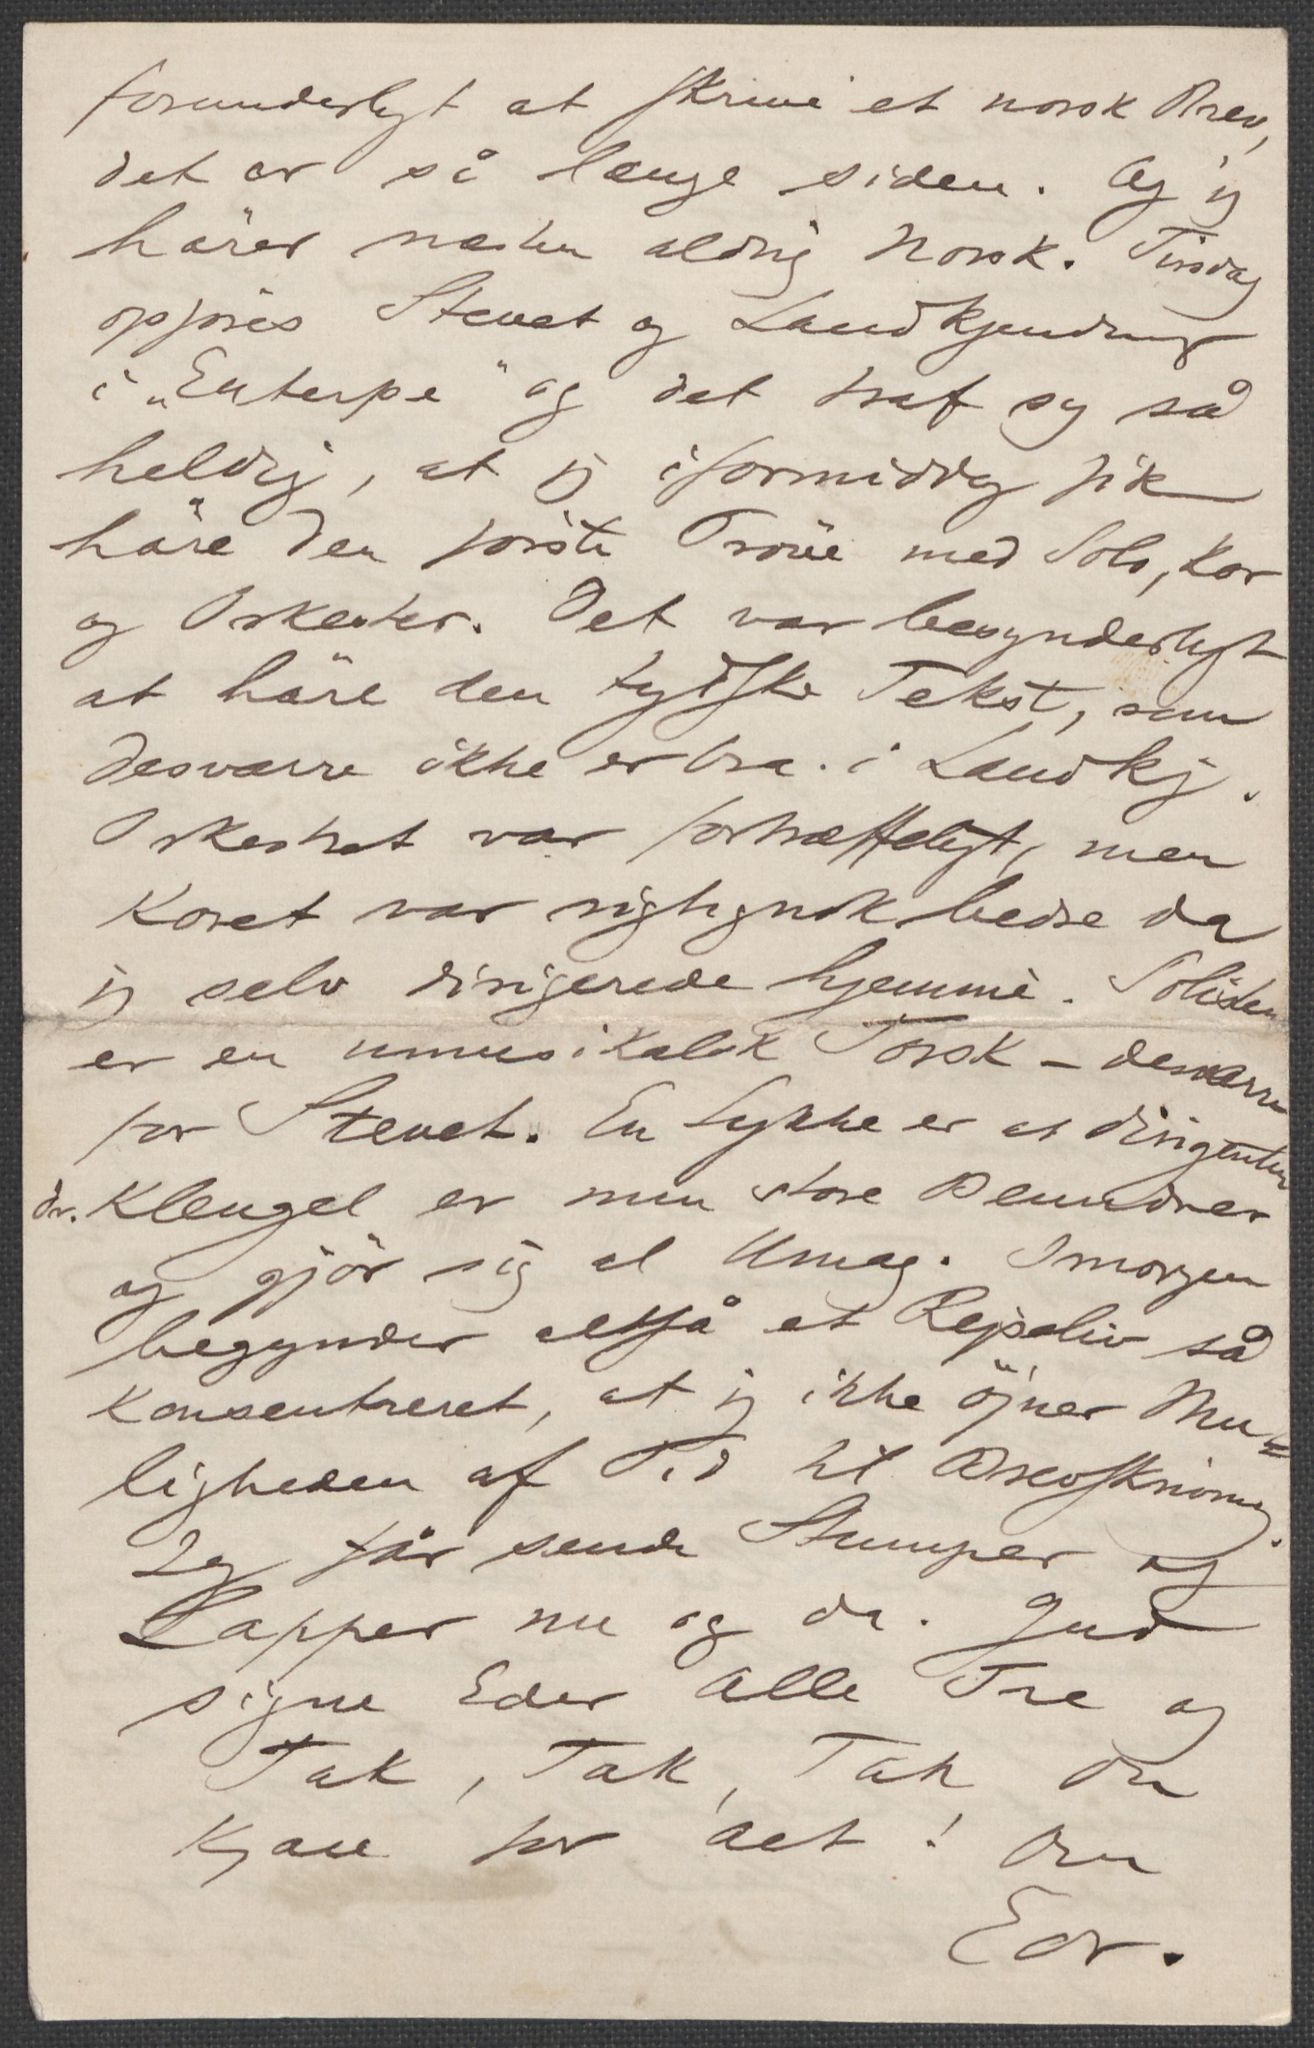 forunderligt at skrive et norsk Brev,
det er så længe siden. Og jeg
hører næsten aldrig Norsk. Tirsdag
opføres Stevet og Landkjending
i „Euterpe" og det traf sig så
heldig, at jeg iformiddag fik
høre den første Prøve med Solo, Kor
og Orkester. Det var besynderligt
at høre den tydske Tekst, som
desværre ikke er bra i Landkj.
Orkestret var fortræffeligt, men
Koret var rigtignok bedre da
jeg selv dirigerede hjemme. Solisten
er en umusikalsk Torsk – desværre
for Stevet. En Lykke er at Dirigenten
Dr. Klengel er min store Beundrer
og gjør sig al Umag. Imorgen
begynder altså et Rejseliv så
konsentreret, at jeg ikke øjner Mu=
ligheden af Tid til Brevskrivning.
Jeg får sende Stumper og
Lapper nu og da. Gud
signe Eder alle Tre og
Tak, Tak, Tak Du
Kjære for alt! Din
Edv.